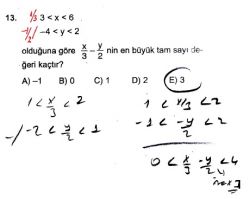 13. 1/3 3 < x < 6
-1/2/ -4 < y < 2
olduğuna göre x/3 - y/2 nin en büyük tam sayı de-
ğeri kaçtır?
A) –1 B) 0 C) 1 D) 2 E) 3
1 < x/3 < 2 1 < x/3 < 2
-/ -2 < y/2 < 1 -1 < -y/2 < 2
0 < x/3 - y/2 < 4
max 3